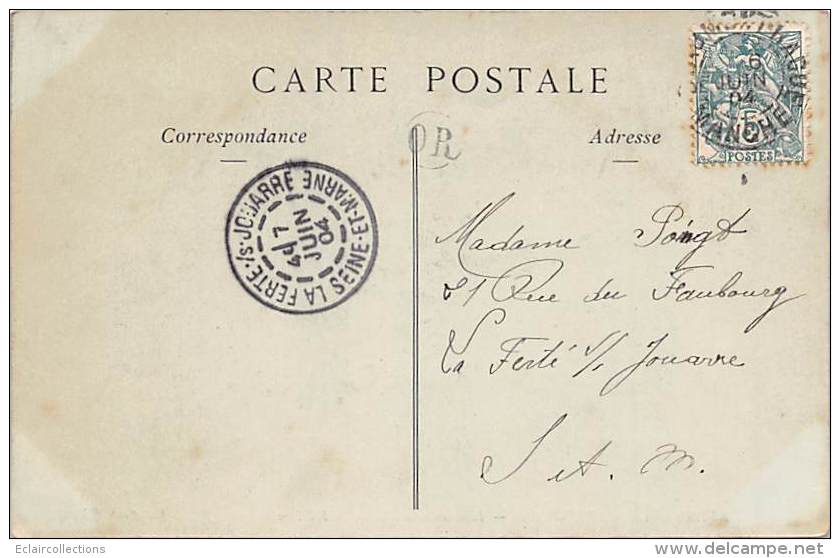 CARTE POSTALE
Correspondance
Adresse
OR
6
JUIN
04
MANCHE
5
POSTES
LA FERTE-S/-JOUARRE SEINE-ET-MARNE
7
JUIN
04
Madame
Rue du Faubourg
La Ferté s/s Jouarre
S. et. M.
Eclaircollections
delcampe.net